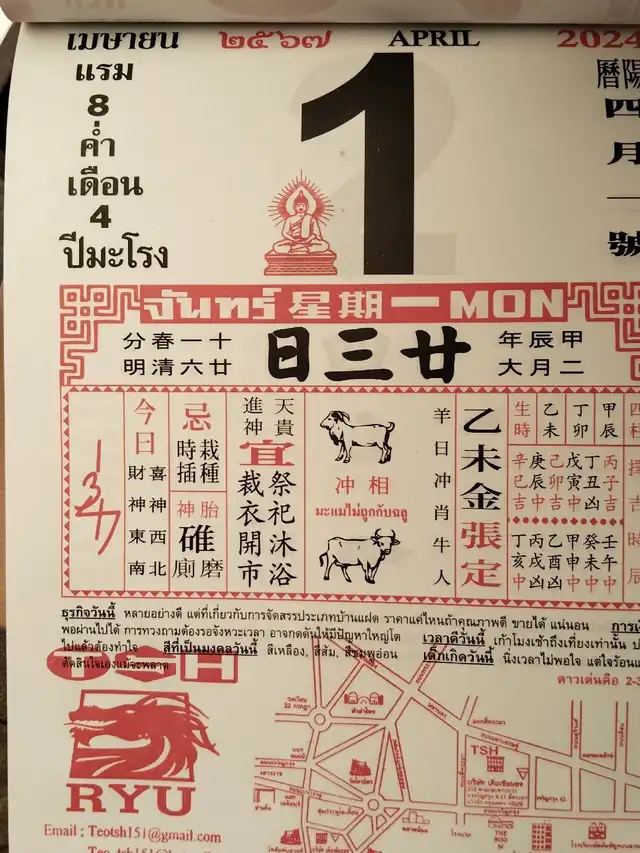 เมษายน ๒๕๖๗ APRIL 2024
แรม
8
ค่ำ
เดือน
4
ปีมะโรง
1
曆陽
四
月
一
號
จันทร์ 星期一 MON
分春一十
明清六廿
日三廿
年辰甲
大月二
今日
喜神西北
財神東南
忌
栽種
時插
神胎
碓
磨
廁
天貴
進神
宜
祭祀沐浴
裁衣開市
冲相
มะแมไม่ถูกกับฉลู
羊日冲肖牛人
乙未金
張定
生時
乙未
丁卯
甲辰
四
辛巳吉
庚辰中
己卯吉
戊寅中
丁丑凶
丙子吉
丁亥中
丙戌凶
乙酉凶
甲申中
癸未中
壬午中
擇
吉
時
辰
137
ธุรกิจวันนี้ หลายอย่างดี แต่ที่เกี่ยวกับการจัดสรรประเภทบ้านแฝด ราคาแค่ไหนถ้าคุณภาพดี ขายได้ แน่นอน
พอผ่านไปได้ การทวงถามต้องรอจังหวะเวลา อาจกดดันให้มีปัญหาใหญ่โต เวลาดีวันนี้ เก้าโมงเช้าถึงเที่ยงเท่านั้น
ไปแล้วต้องทำใจ สีที่เป็นมงคลวันนี้ สีเหลือง, สีส้ม, สีชมพูอ่อน เด็กเกิดวันนี้ นิ่งเวลาไม่พอใจ
ตัดสินใจเองแม้จะพลาด
ดาวเด่นคือ
TSH
RYU
Email : Teotsh151@gmail.com
TSH